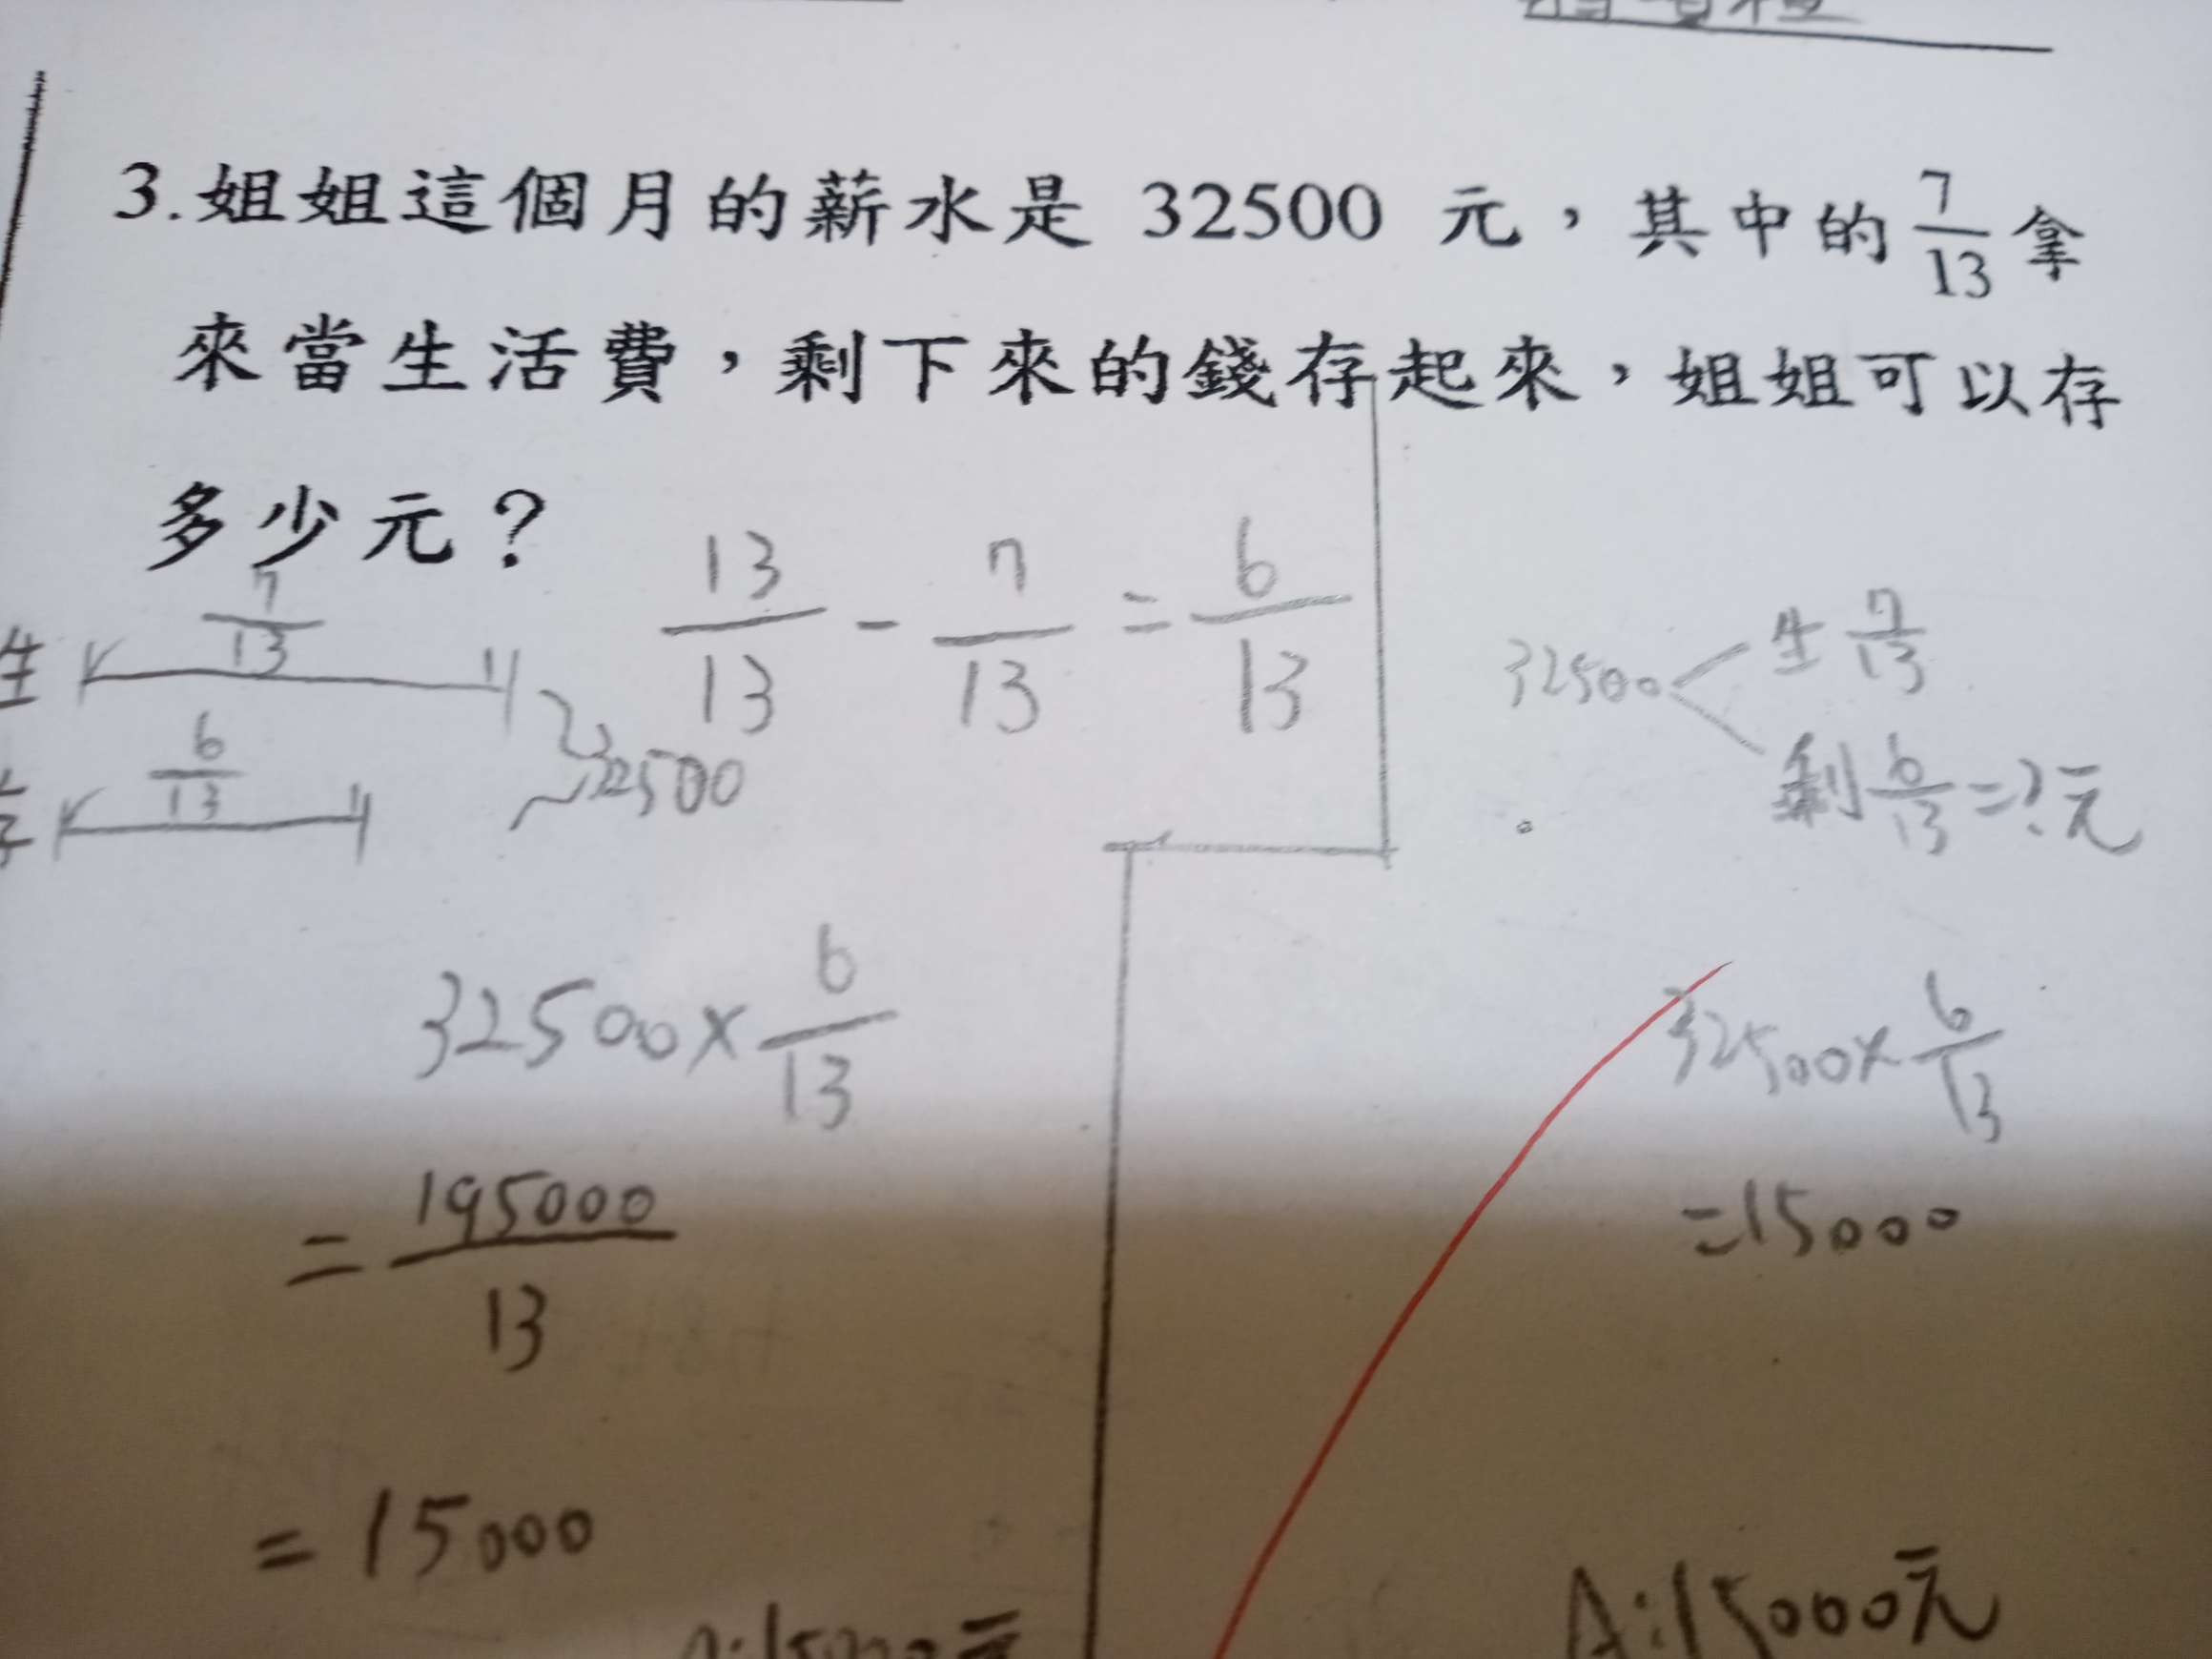 3.姐姐這個月的薪水是 32500 元，其中的 7/13 拿
來當生活費，剩下來的錢存起來，姐姐可以存
多少元？
生 7/13
6/13
32500
13/13 - 7/13 = 6/13
32500×6/13
=195000/13
=15000
32500
生 7/13
剩 6/13=?元
32500×6/13
=15000
A:15000元